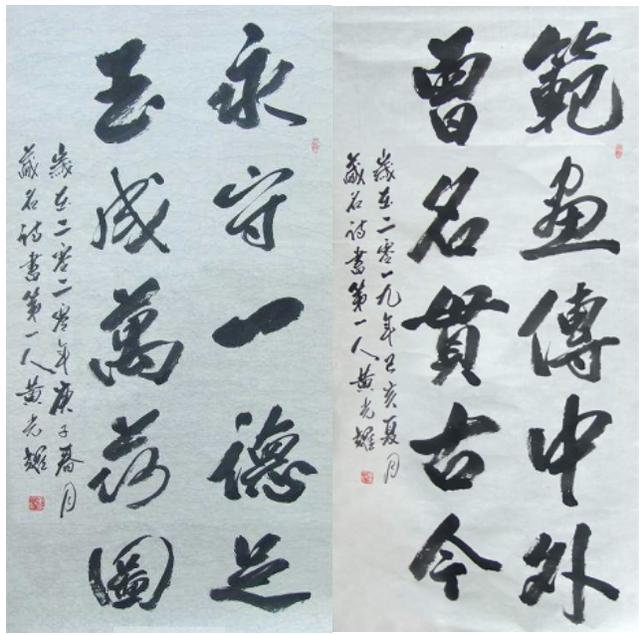 範畫傳中外
曾名貫古今
歲在二零一九年己亥夏月
藏名詩書第一人黄光耀
永守一德足
玉成萬圖
歲在二零二零年庚子春月
藏名詩書第一人黄光耀